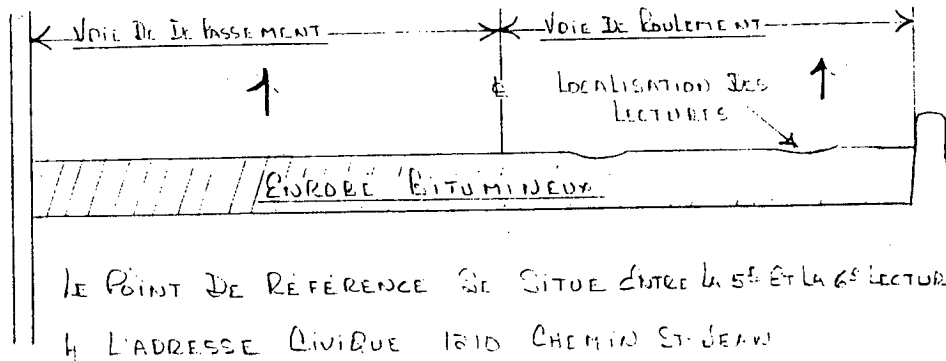 VOIE DE DEPASSEMENT
VOIE DE ROULEMENT
℄
LOCALISATION DES
LECTURES
ENROBÉ BITUMINEUX
LE POINT DE RÉFÉRENCE SE SITUE ENTRE LA 5E ET LA 6E LECTUR
À L'ADRESSE CIVIQUE CHEMIN ST-JEAN